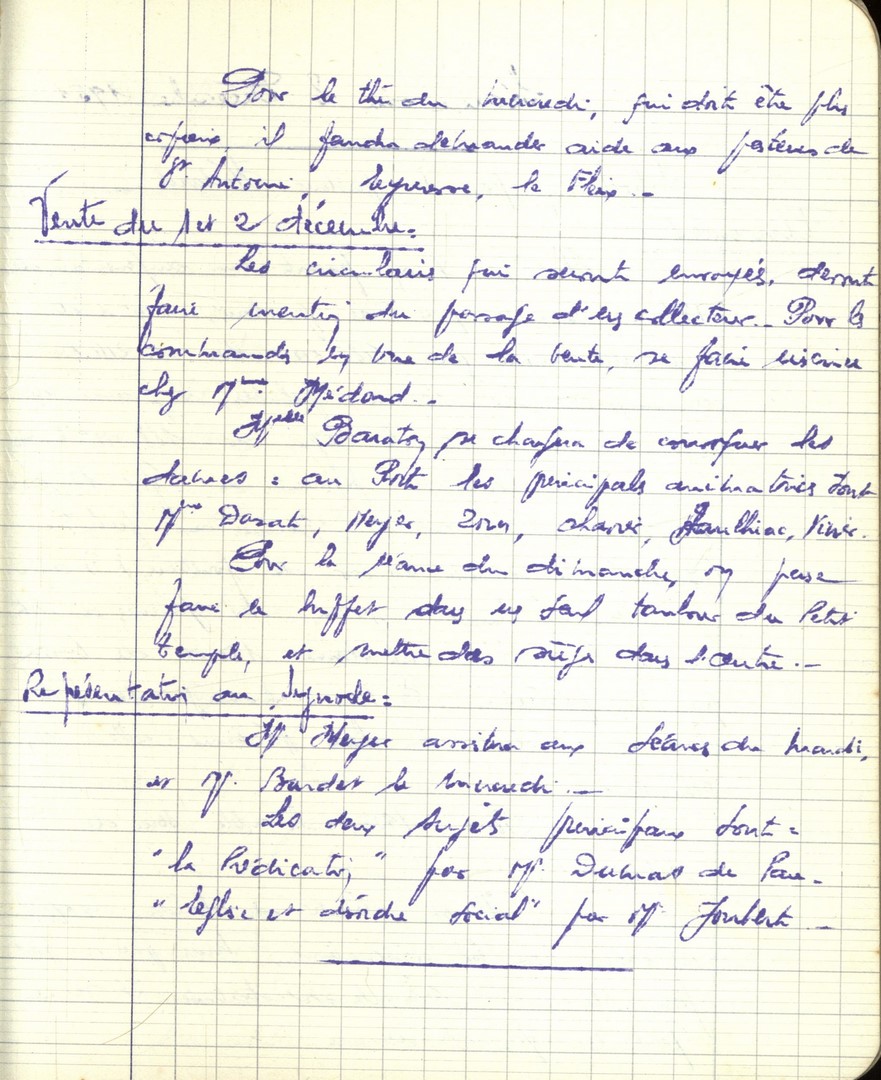 Pour le thé du mercredi, qui doit être plus
copieux, il faudra demander aide aux pasteurs de
St Antoine, le Fleix. _
Vente du 1 et 2 décembre.
Les circulaires qui seront envoyés, devront
faire mention du passage d'un collecteur.. Pour les
commandes en vue de la vente, se faire inscrire
chez Mme Médard..
Melle Baraton se chargera de convoquer les
dames : au Port les principales animatrices sont
Mme Darat, Meyer, , Vivier.
Pour la séance du dimanche, on pense
faire le buffet dans un seul tambour du Petit
temple, et mettre des sièges dans l'autre. _
Représentation au Synode :
Mr Meyer assistera aux séances du mardi,
et Mr. Bardet le mercredi. _
Les deux sujets principaux sont :
"la Prédication" par Mr. Dumas de Pau.
"l'Eglise et désordre social" par Mr Joubert _